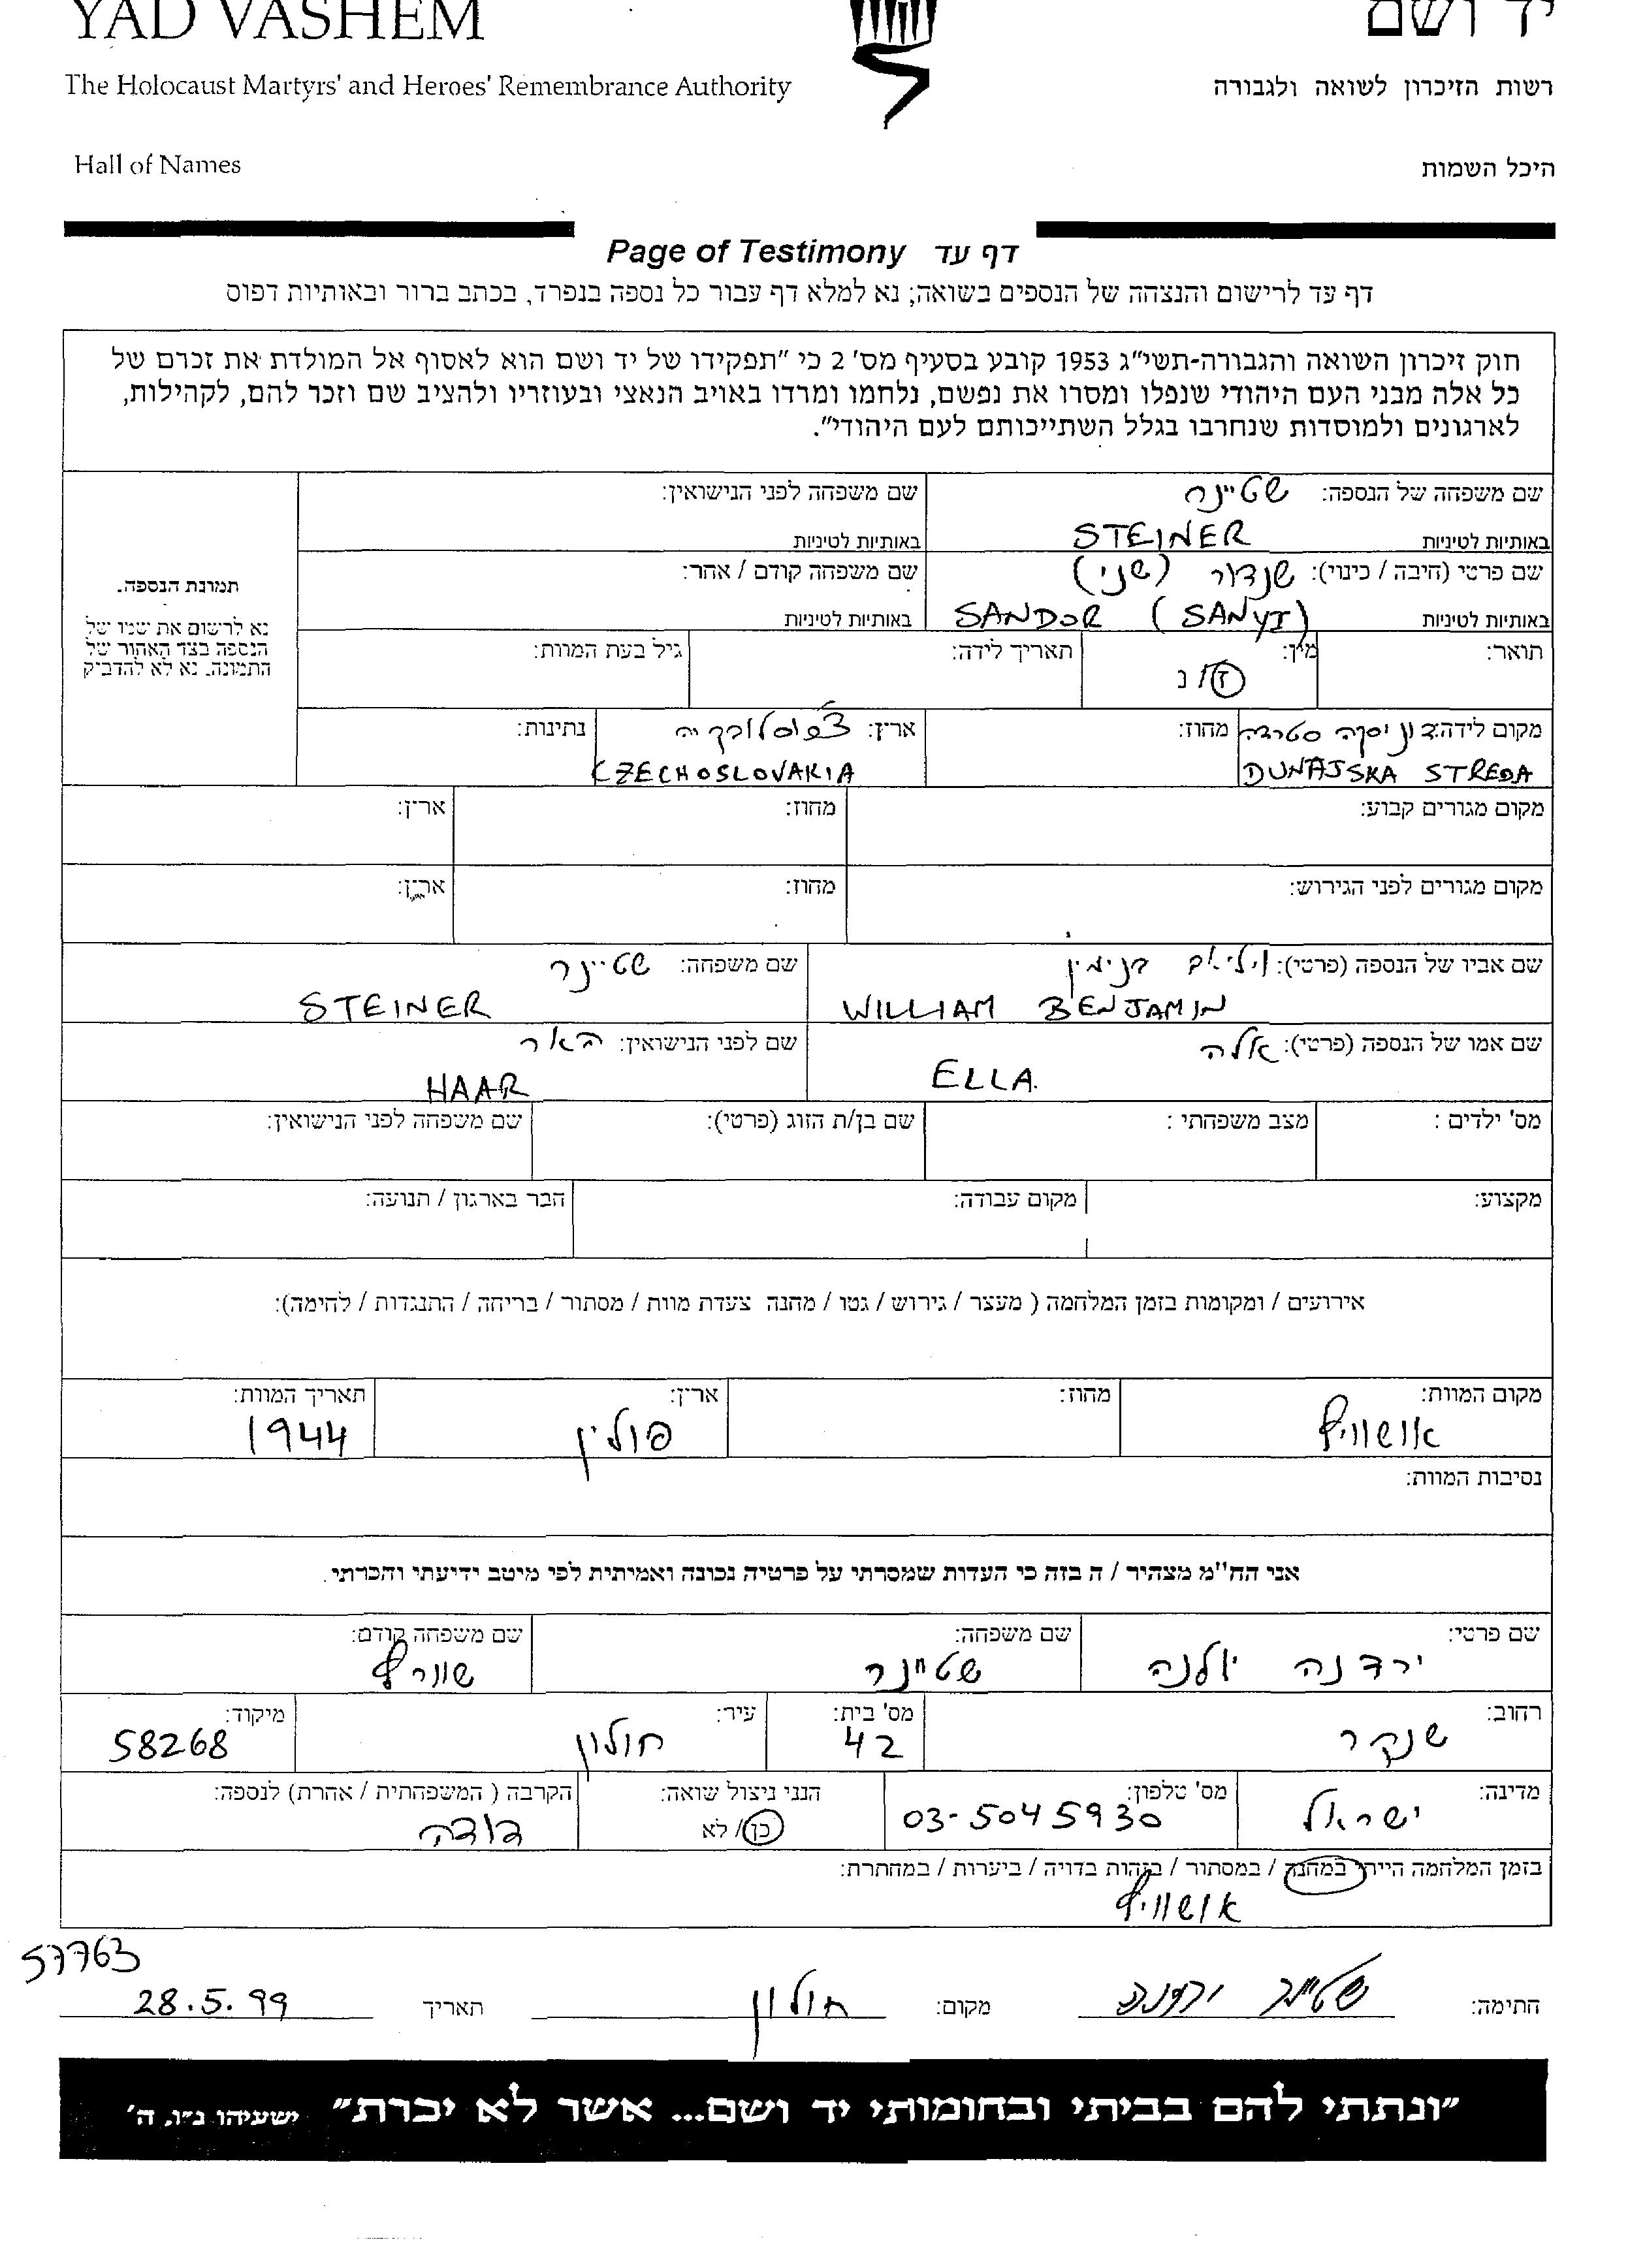 YAD VASHEM יד ושם
The Holocaust Martyrs' and Heroes' Remembrance Authority רשות הזיכרון לשואה ולגבורה
Hall of Names היכל השמות
Page of Testimony דף עד
דף עד לרישום והנצחה של הנספים בשואה; נא למלא דף עבור כל נספה בנפרד, בכתב ברור ובאותיות דפוס
חוק זיכרון השואה והגבורה-תשי״ג 1953 קובע בסעיף מס' 2 כי ״תפקידו של יד ושם הוא לאסוף אל המולדת את זכרם של
כל אלה מבני העם היהודי שנפלו ומסרו את נפשם, נלחמו ומרדו באויב הנאצי ובעוזריו ולהציב שם וזכר להם, לקהילות,
לארגונים ולמוסדות שנחרבו בגלל השתייכותם לעם היהודי״.
שם משפחה של הנספה: שטיינר שם משפחה לפני הנישואין:
באותיות לטיניות STEINER באותיות לטיניות
שם פרטי (חיבה / כינוי): שנדור (שני) שם משפחה קודם / אחר:
באותיות לטיניות SANDOR (SANYI) באותיות לטיניות
תמונת הנספה.
נא לרשום את שמו של
הנספה בצד האחור של
התמונה. נא לא להדביק
תואר: מין: ז / נ תאריך לידה: גיל בעת המוות:
מקום לידה: דוניסקה סטרדה מחוז: ארץ: צ'כוסלובקיה נתינות:
DUNAJSKA STREDA CZECHOSLOVAKIA
מקום מגורים קבוע: מחוז: ארץ:
מקום מגורים לפני הגירוש: מחוז: ארץ:
שם אביו של הנספה (פרטי): ויליאם בנימין שם משפחה: שטיינר
WILLIAM BENJAMIN STEINER
שם אמו של הנספה (פרטי): אלה שם לפני הנישואין: האר
ELLA HAAR
מס' ילדים : מצב משפחתי : שם בן/ת הזוג (פרטי): שם משפחה לפני הנישואין:
מקצוע: מקום עבודה: חבר בארגון / תנועה:
אירועים / ומקומות בזמן המלחמה ( מעצר / גירוש / גטו / מחנה צעדת מוות / מסתור / בריחה / התנגדות / לחימה):
מקום המוות: מחוז: ארץ: תאריך המוות:
אושוויץ פולין 1944
נסיבות המוות:
אני הח״מ מצהיר / ה בזה כי העדות שמסרתי על פרטיה נכונה ואמיתית לפי מיטב ידיעתי והכרתי.
שם פרטי: שם משפחה: שם משפחה קודם:
ירדנה יולנה שטיינר שוורץ
רחוב: מס' בית: עיר: מיקוד:
שנקר 42 חולון 58268
מדינה: מס' טלפון: הנני ניצול שואה: הקרבה ( המשפחתית / אחרת) לנספה:
ישראל 03-5045930 כן / לא דודה
בזמן המלחמה הייתי במחנה / במסתור / בזהות בדויה / ביערות / במחתרת:
אושוויץ
57763
חתימה: שטיינר ירדנה מקום: חולון תאריך 28.5.99
״ונתתי להם בביתי ובחומותי יד ושם... אשר לא יכרת״ ישעיהו נ״ו, ה'